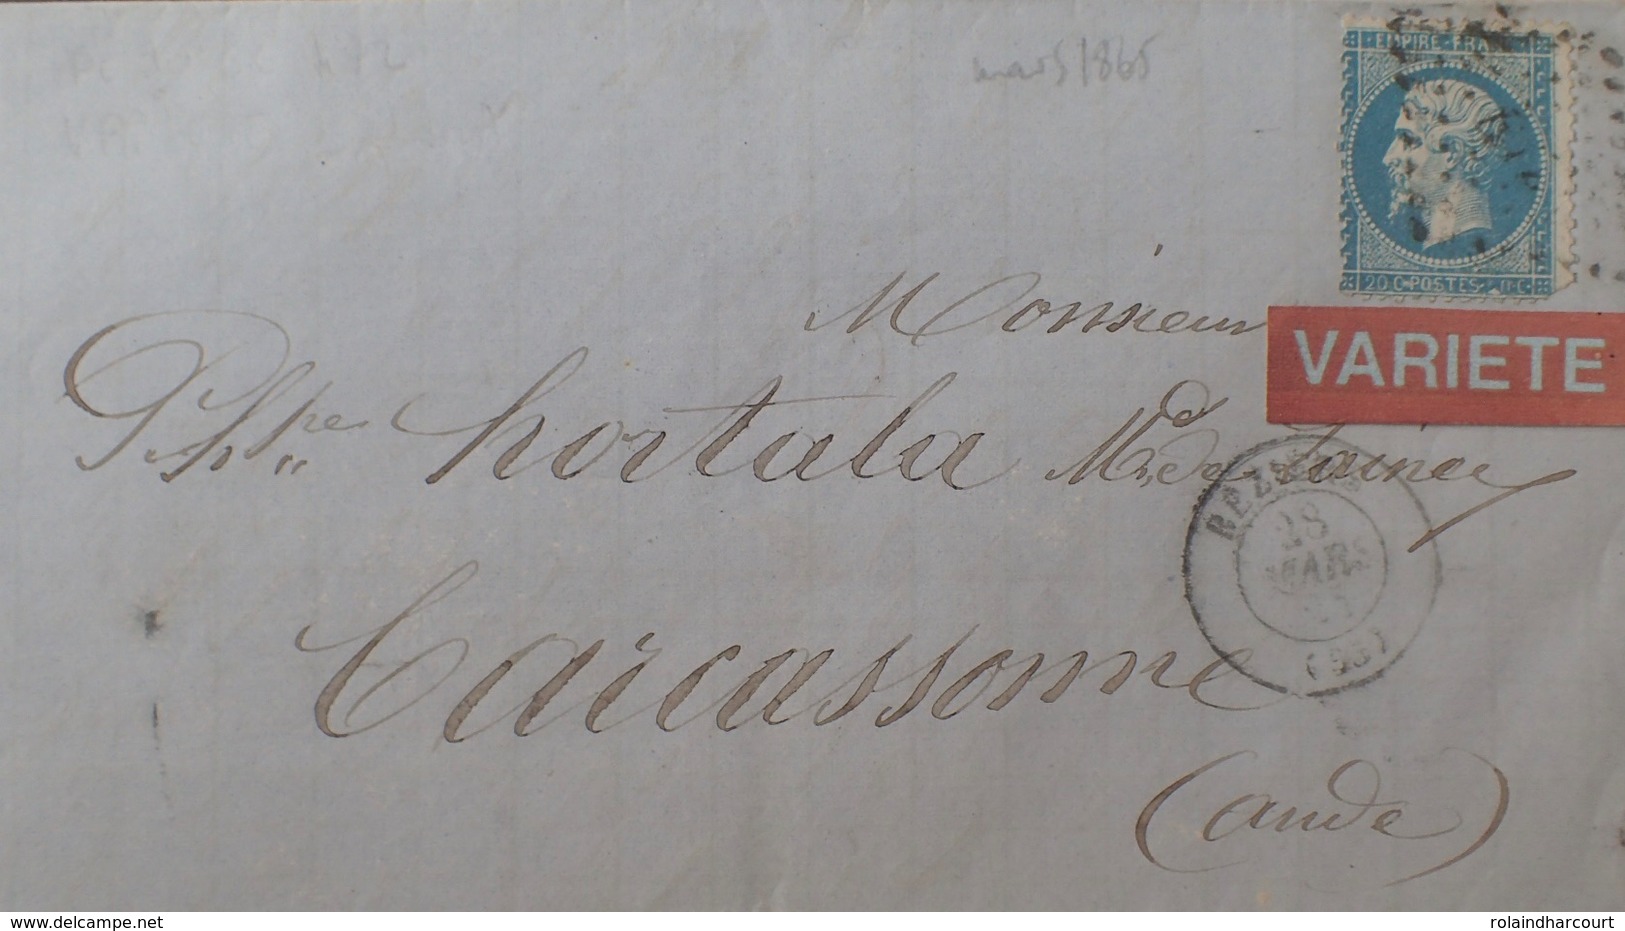 mars 1865
EMPIRE FRANC
20 C POSTES 20 C
VARIETE
Monsieur
Phppe hortala Md de Laines
28
MARS
(53)
Carcassonne
(aude)
www.delcampe.net
rolaindharcourt